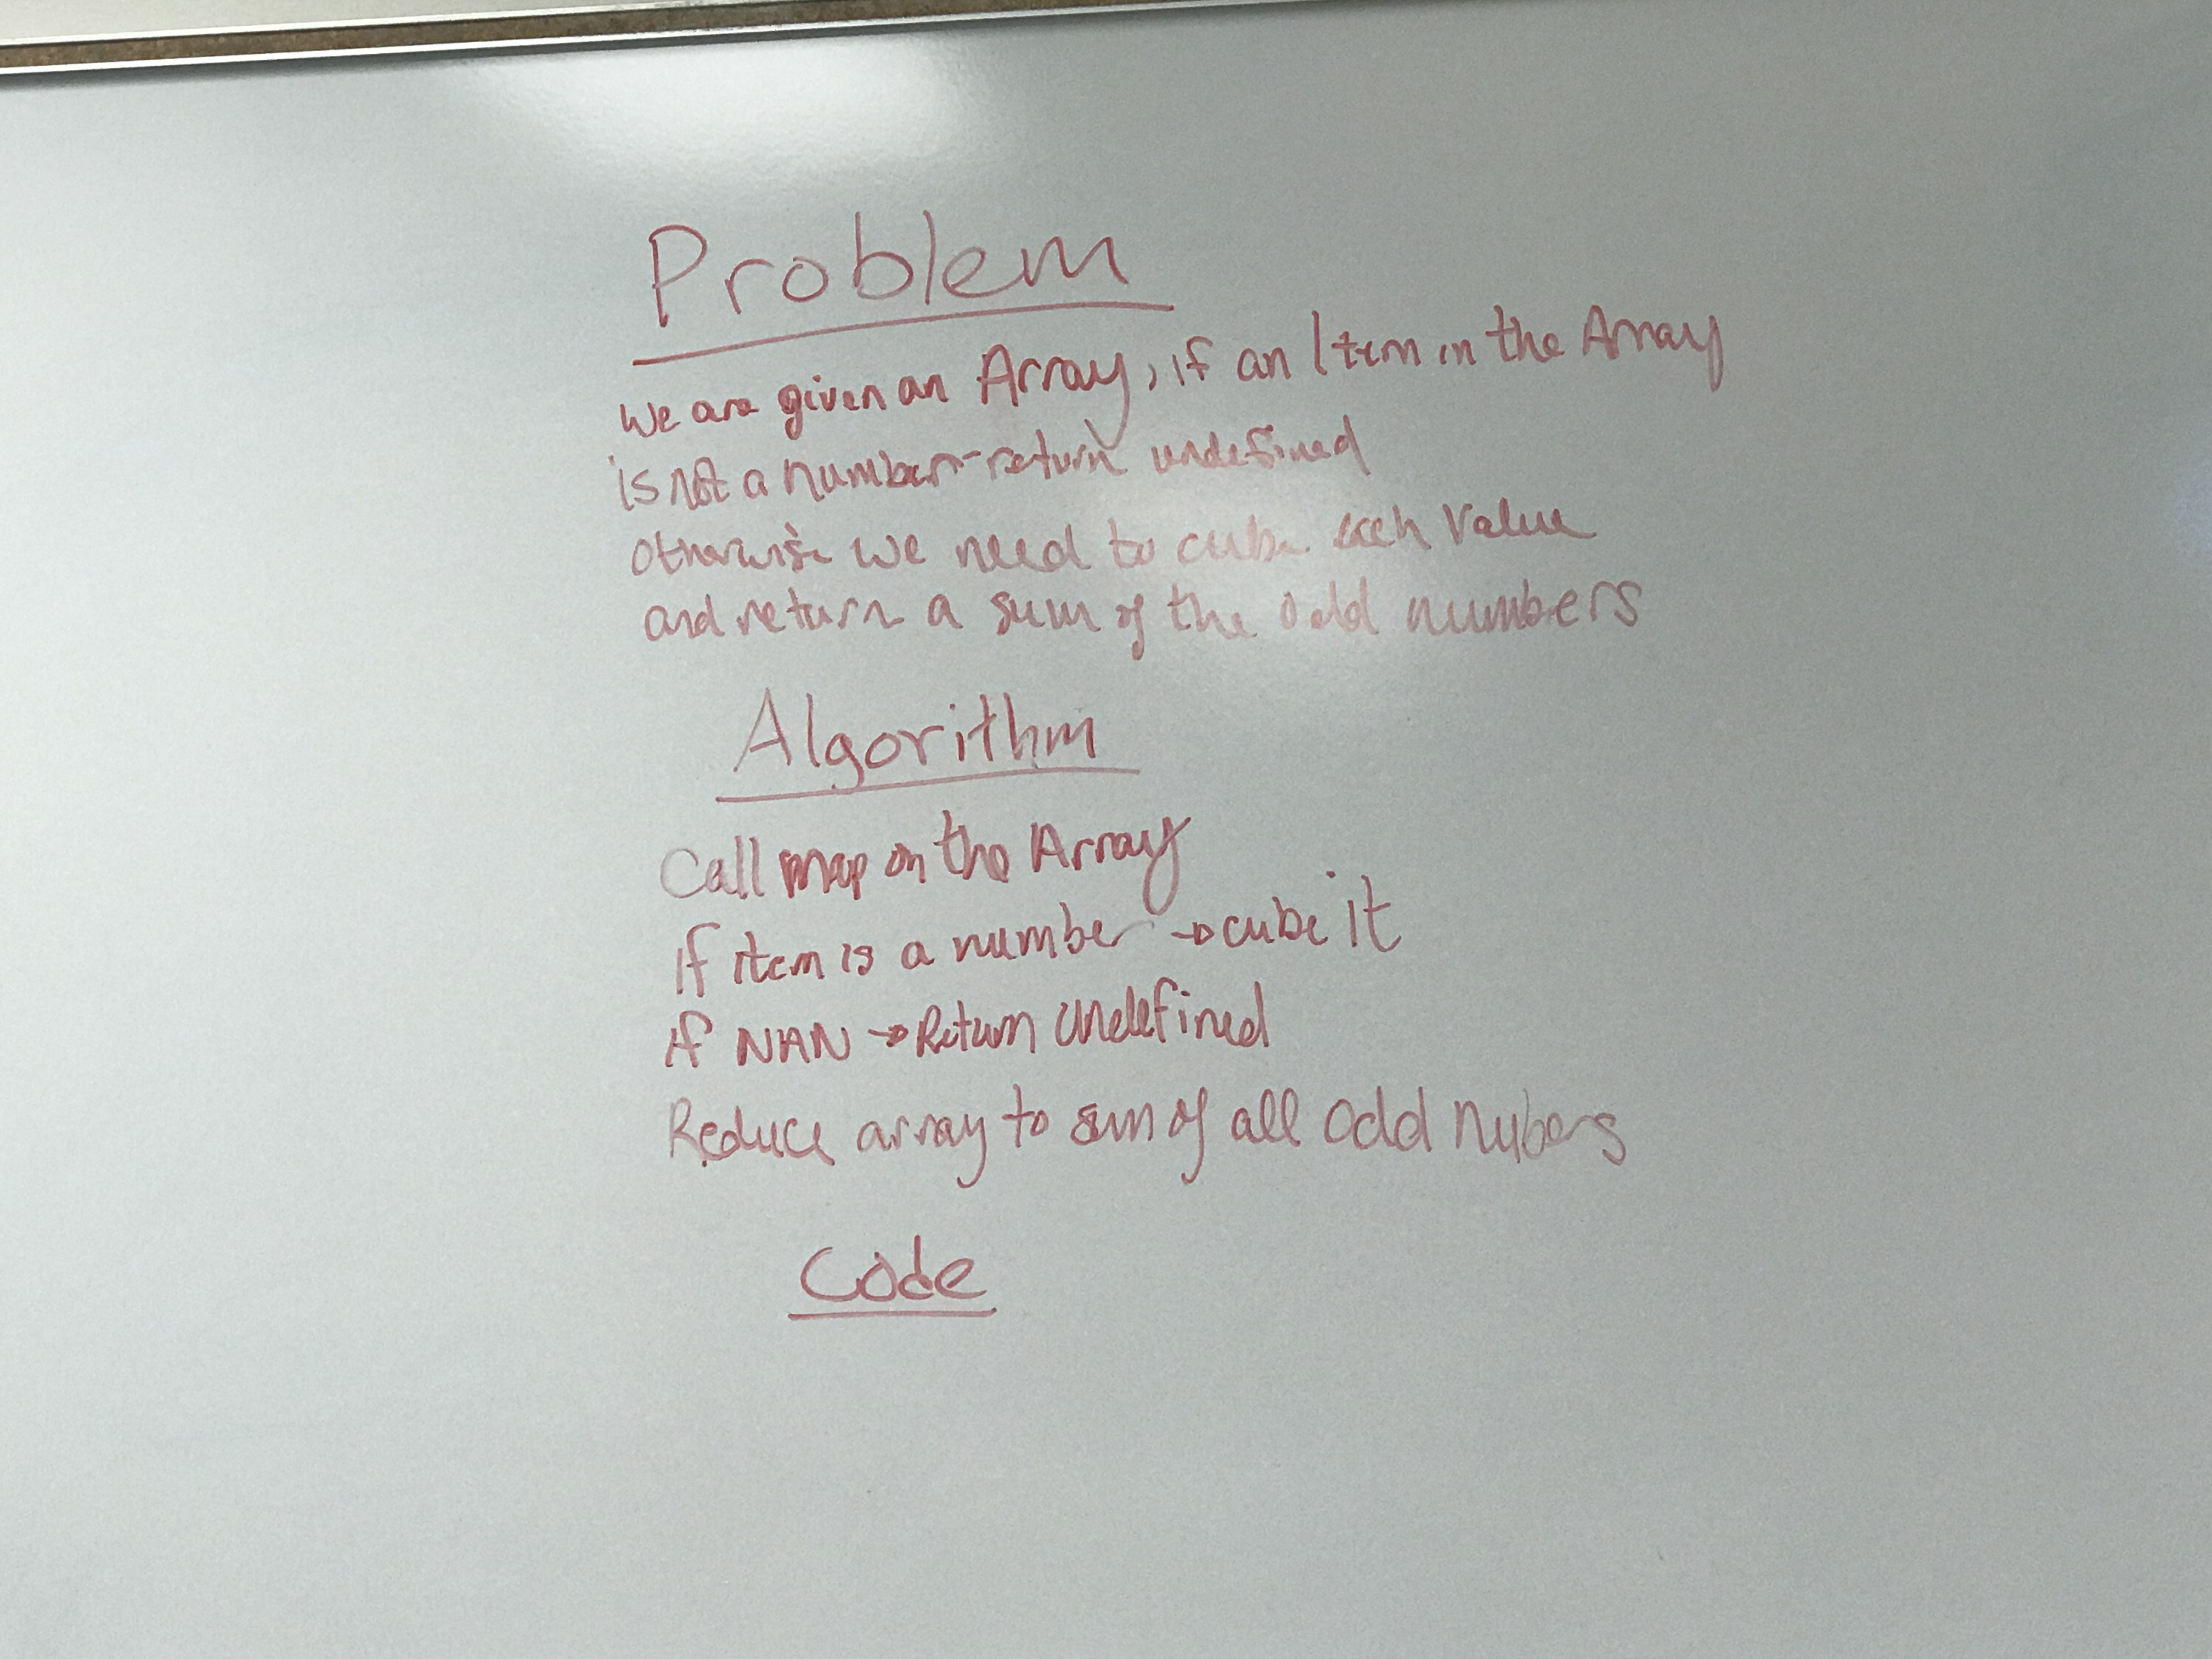 Problem
We are given an Array, if an Item in the Array
is not a number - return undefined
otherwise we need to cube each value
and return a sum of the odd numbers
Algorithm
Call map on the Array
If item is a number → cube it
If NAN → Return Undefined
Reduce array to sum of all odd Nubers
Code